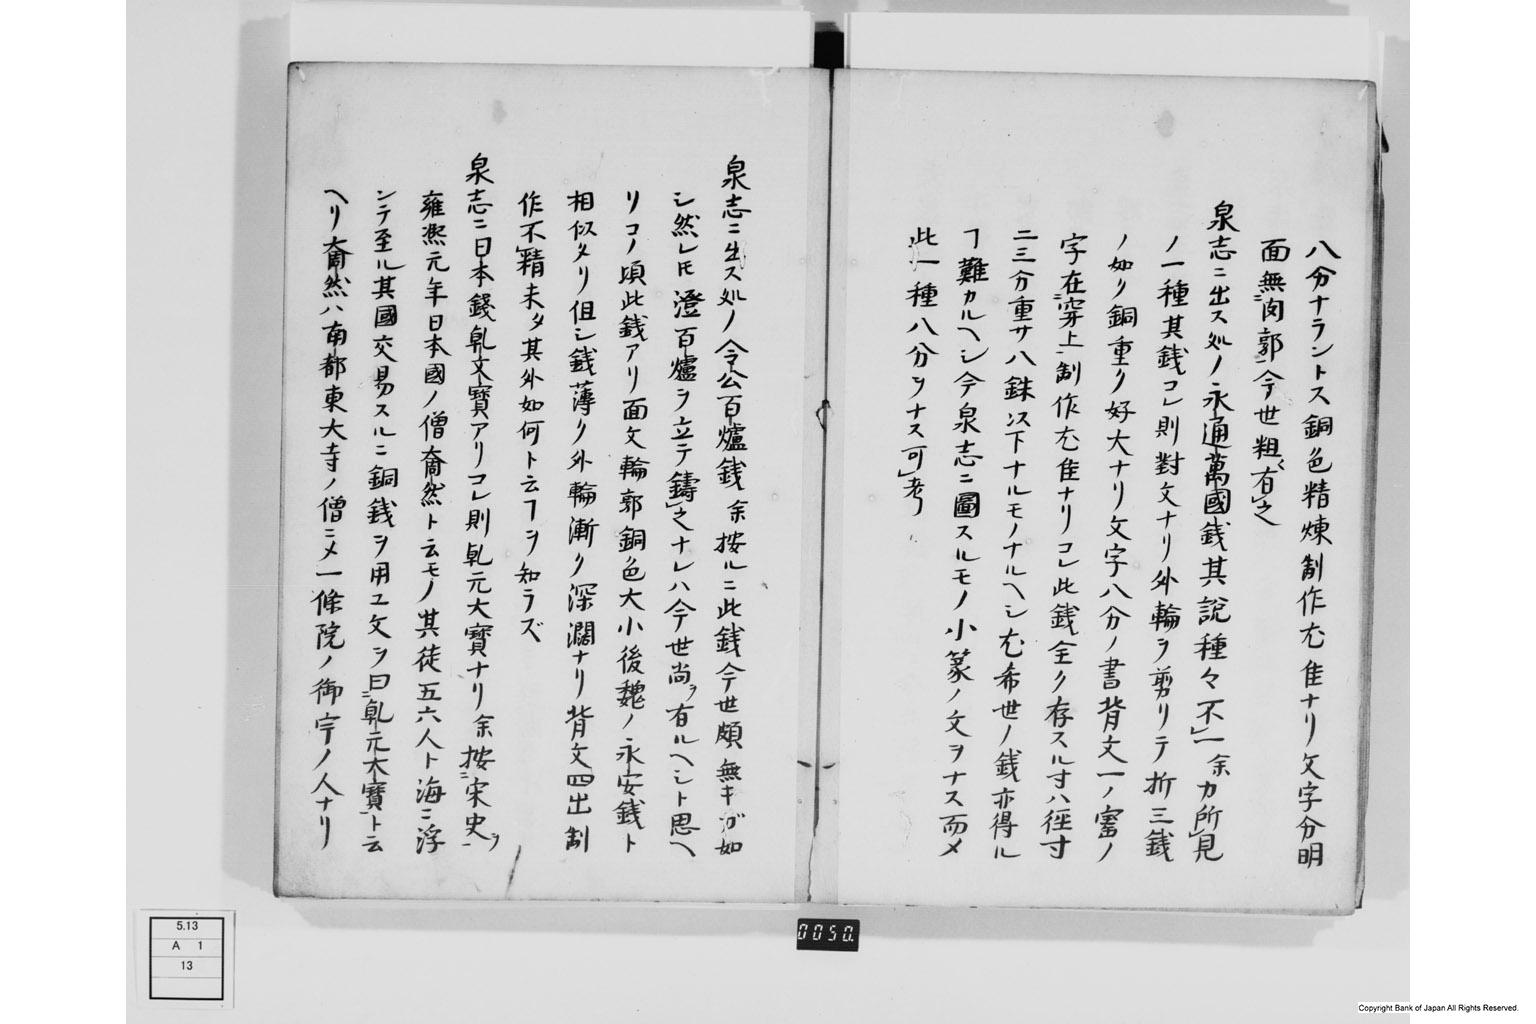 八分ナラントス銅色精煉制作尤佳ナリ文字分明
面無内郭今世粗有之
泉志ニ出ス処ノ永通萬國銭其説種々不一余カ所見
ノ一種其銭コレ則對文ナリ外輪ヲ剪リテ折三銭
ノ如リ銅重ク好大ナリ文字八分ノ書背文一ノ
字在穿上制作尤佳ナリコレ此銭全ク存スル寸ハ径寸
二三分重サ八銖以下ナルモノナルヘシ尤希世ノ銭亦得ル
ヿ難カルヘシ今泉志ニ圖スルモノ小篆ノ文ヲナス而メ
此一種八分ヲナス可考
泉志ニ出ス処ノ令公百爐銭余按ルニ此銭今世頗無キガ如
シ然レ𪜈澄百爐ヲ立テ鑄之ナレハ今世尚ヲ有ルヘシト思ヘ
リコノ頃此銭アリ面文輪郭銅色大小後魏ノ永安銭ト
相似タリ但シ銭薄ク外輪漸ク深濶ナリ背文四出制
作不精未タ其外如何ト云フヿヲ知ラズ
泉志ニ日本錢乹文大寶アリコレ則乹元大寶ナリ余按宋史ヲ
雍熙元年日本國ノ僧奝然ト云モノ其徒五六人ト海ニ浮
ンテ至ル其國交易スルニ銅銭ヲ用ユ文ヲ曰乹元大寶ト云
ヘリ奝然ハ南都東大寺ノ僧ニメ一條院ノ御宇ノ人ナリ
5.13
A 1
13
0050.
Copyright Bank of Japan All Rights Reserved.